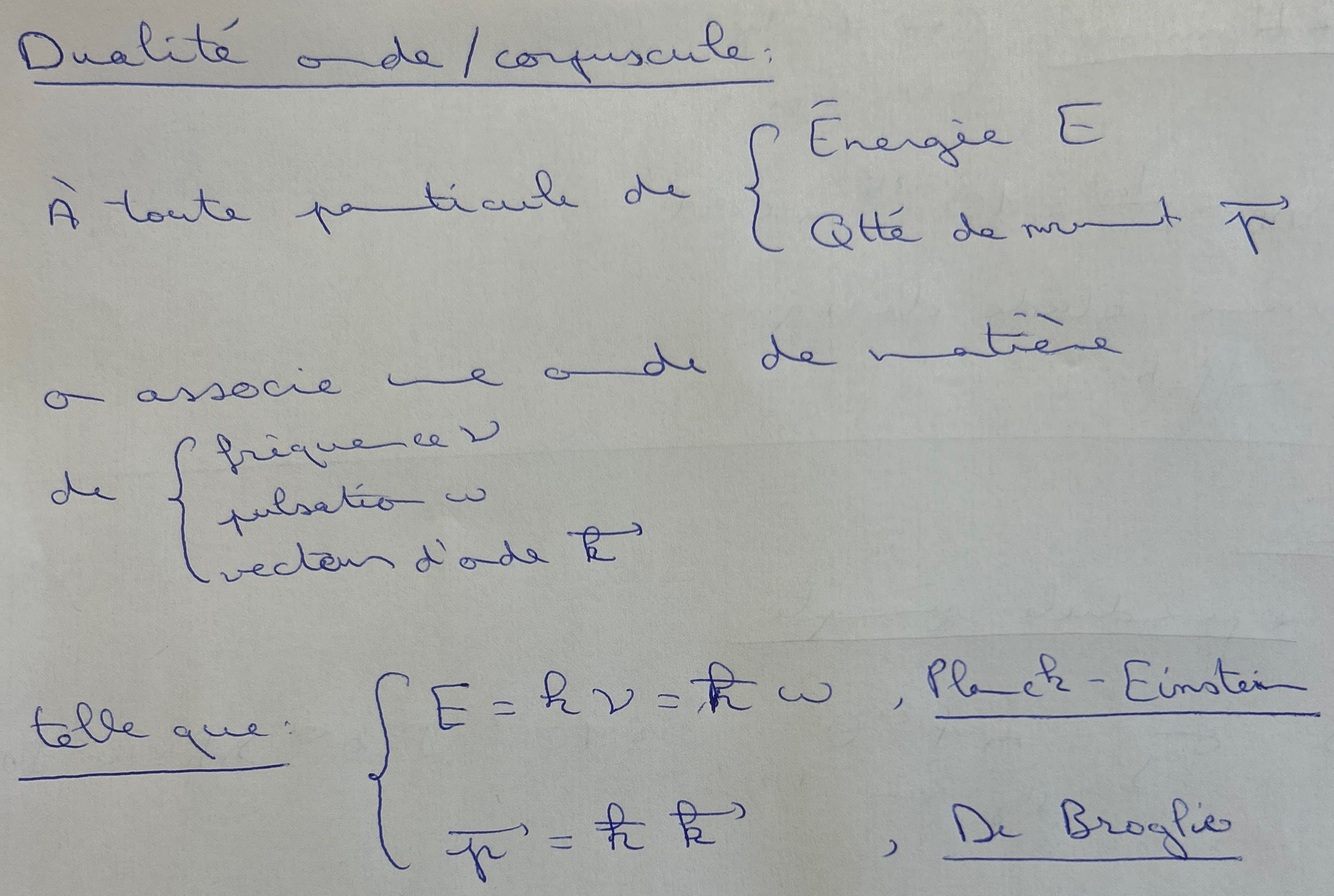 Dualité onde/corpuscule:
À toute particule de { Énergie E
Qtté de mvment $\vec{p}$
on associe une onde de matière
de { fréquence ν
pulsation ω
vecteur d'onde $\vec{k}$
telle que: { E = hν = ħω , Planck-Einstein
$\vec{p}$ = ħ$\vec{k}$ , De Broglie